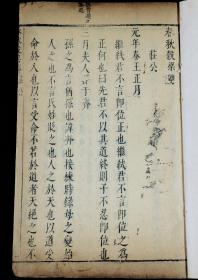 春秋穀梁
莊公
元年春王正月
繼弑君不言即位正也繼弑君不言即位之為
正何也曰先君不以其道終則子不忍即位也
三月夫人孫于齊
孫之為言猶孫也諱奔也接練時錄母之變始
人之也不言氏姓貶之也人之於天也以道受
命於人也以言受命不若於道者天絕之也不